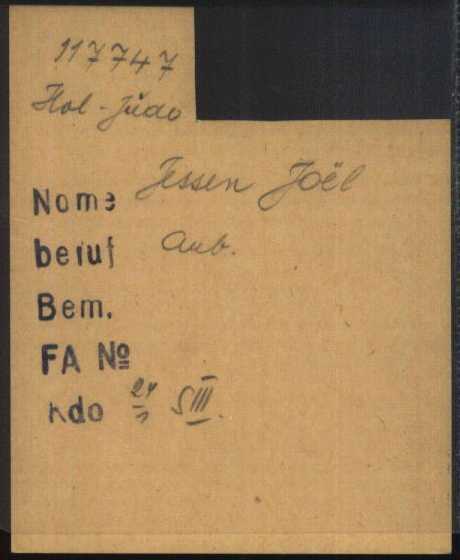 117747
Hol-Jude
Jessen Joël
Name
beruf Arb.
Bem.
FA №
Kdo 24/1 S III.